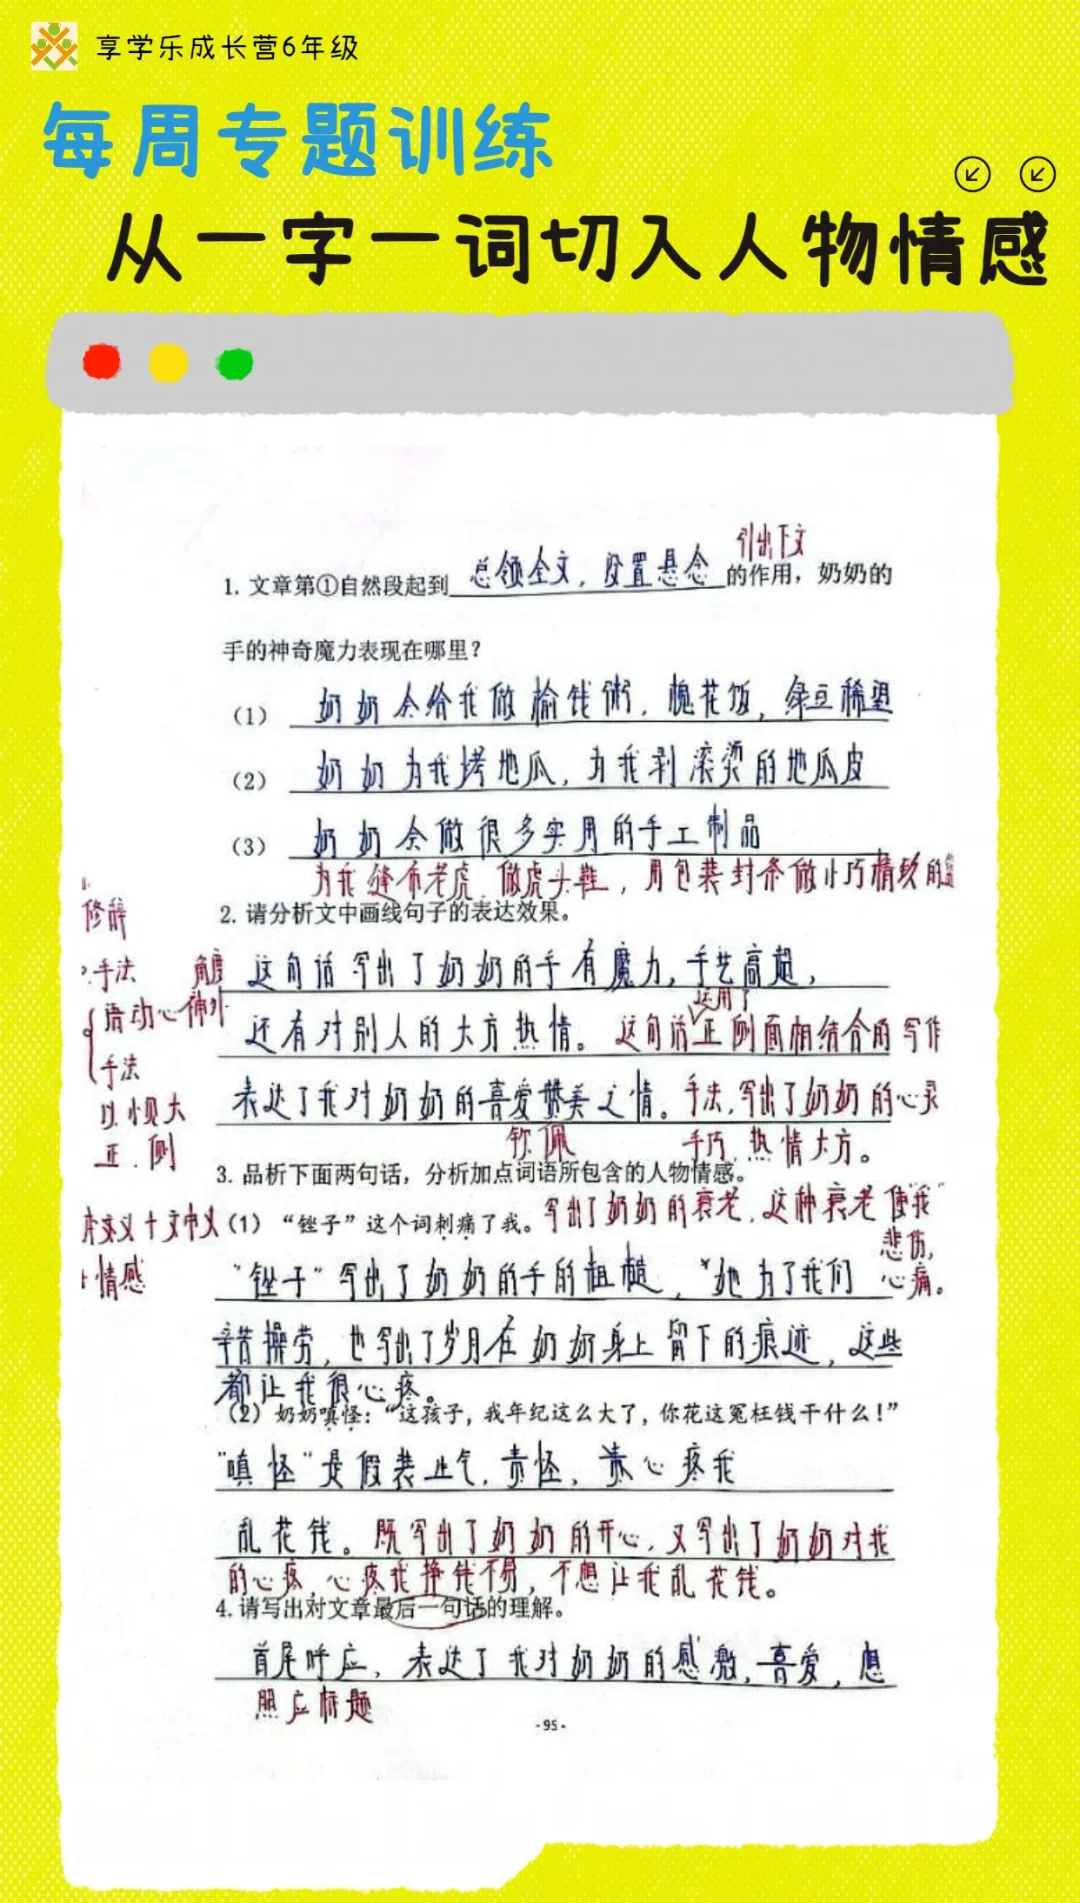 享学乐成长营6年级
每周专题训练
从一字一词切入人物情感
引出下文
1. 文章第①自然段起到 总领全文，设置悬念 的作用，奶奶的
手的神奇魔力表现在哪里？
（1） 奶奶会给我做榆钱粥、槐花饭，绿豆稀
（2） 奶奶为我烤地瓜，为我剥滚烫的地瓜皮
（3） 奶奶会做很多实用的手工制品
为我缝布老虎、做虎头鞋，用包装封条做小巧精致的
2. 请分析文中画线句子的表达效果。
修辞
手法 角度
这句话写出了奶奶的手有魔力，手艺高超，
语动心神外
运用了
还有对别人的大方热情。这句话正侧面相结合的写作
手法
表达了我对奶奶的喜爱赞美之情。手法，写出了奶奶的心灵
以小见大
正、侧
钦佩 手巧、热情大方。
3. 品析下面两句话，分析加点词语所包含的人物情感。
（1）“锉子”这个词刺痛了我。写出了奶奶的衰老，这种衰老使我
悲伤，
心痛。
情感
“锉子”写出了奶奶的手的粗糙，她为了我们
辛苦操劳，也写出了岁月在奶奶身上留下的痕迹，这些
都让我很心疼。
（2）奶奶嗔怪：“这孩子，我年纪这么大了，你花这冤枉钱干什么！”
“嗔怪”是假装生气，责怪，心疼我
乱花钱。既写出了奶奶的开心，又写出了奶奶对我
的心疼，心疼我挣钱不易，不想让我乱花钱。
4. 请写出对文章最后一句话的理解。
首尾呼应，表达了我对奶奶的感激，喜爱，思
照应标题
-95-